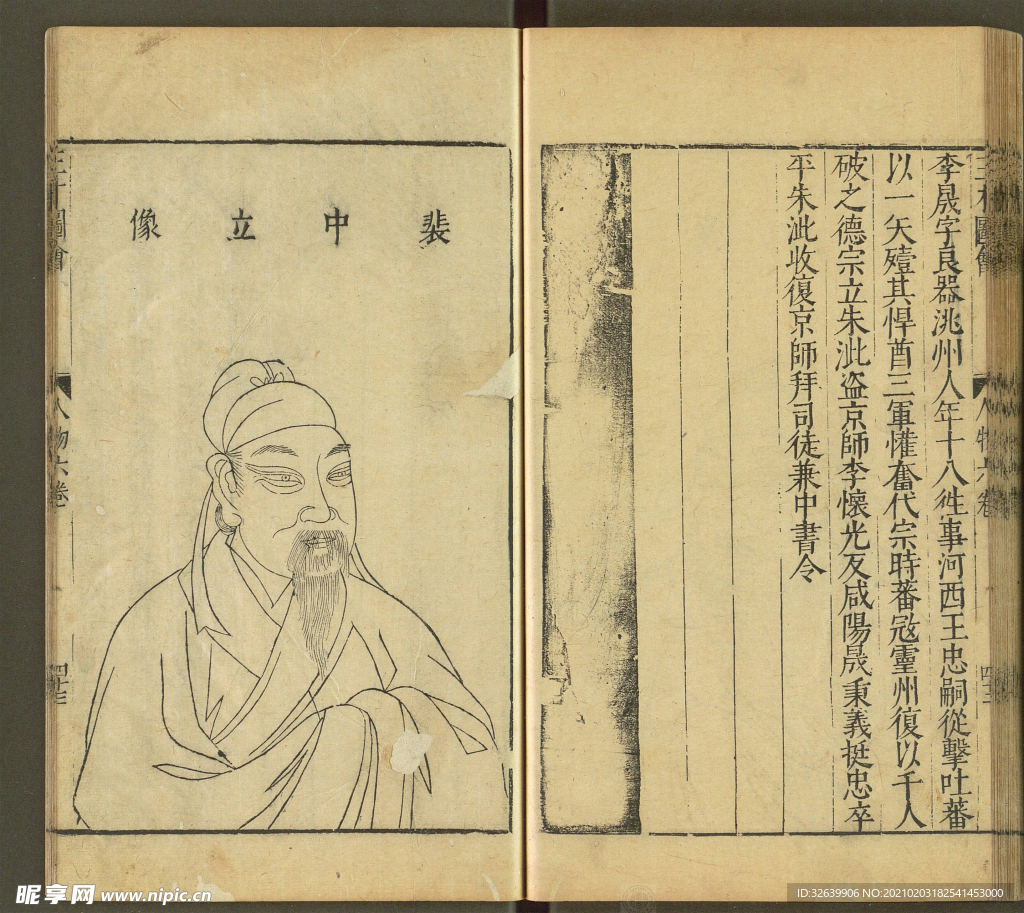 三才圖會
人物六卷
李晟字良器洮州人年十八徃事河西王忠嗣從擊吐蕃
以一矢殪其悍酋三軍懽奮代宗時蕃冦靈州復以千人
破之德宗立朱泚盗京師李懷光反咸陽晟秉義挺忠卒
平朱泚收復京師拜司徒兼中書令
裴中立像
三才圖會
人物六卷
昵享网 www.nipic.cn
ID:32639906 NO:20210203182541453000